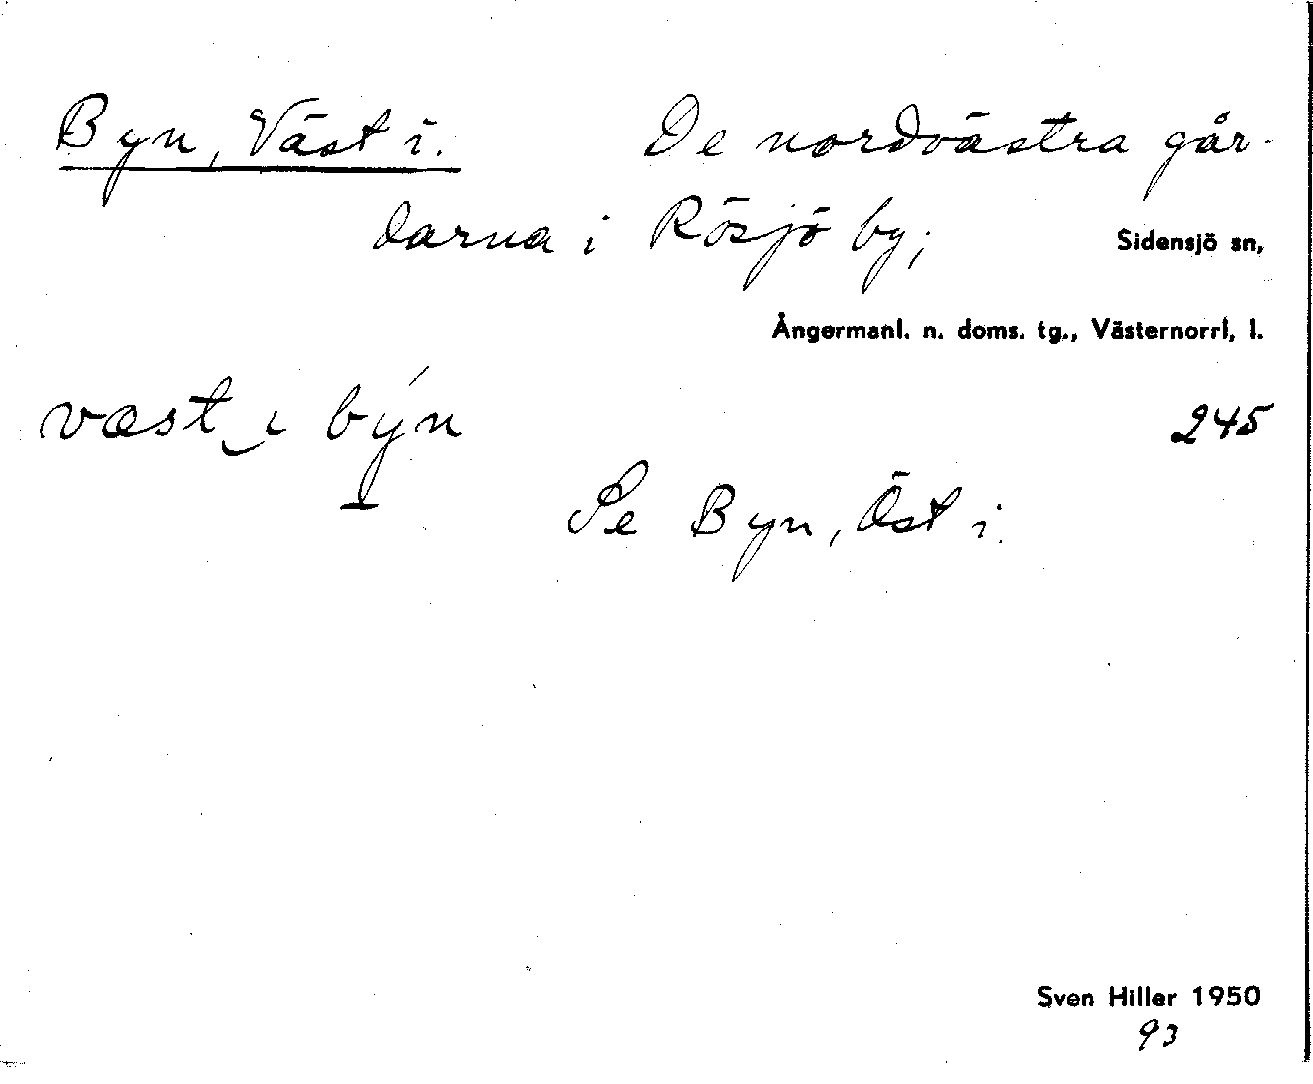 Byn, Väst i. De nordvästra går-
darna i Rösjö by; Sidensjö sn,
Ångermanl. n. doms. tg., Västernorrl, l.
væst‿ɩ býn 245
Se Byn, Öst i.
Sven Hiller 1950
93